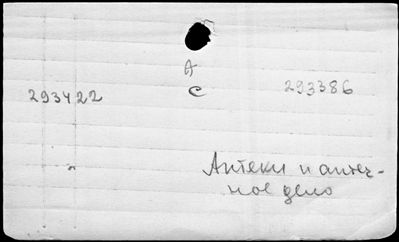 А
293422 С 293386
Аптеки и аптеч-
ное дело